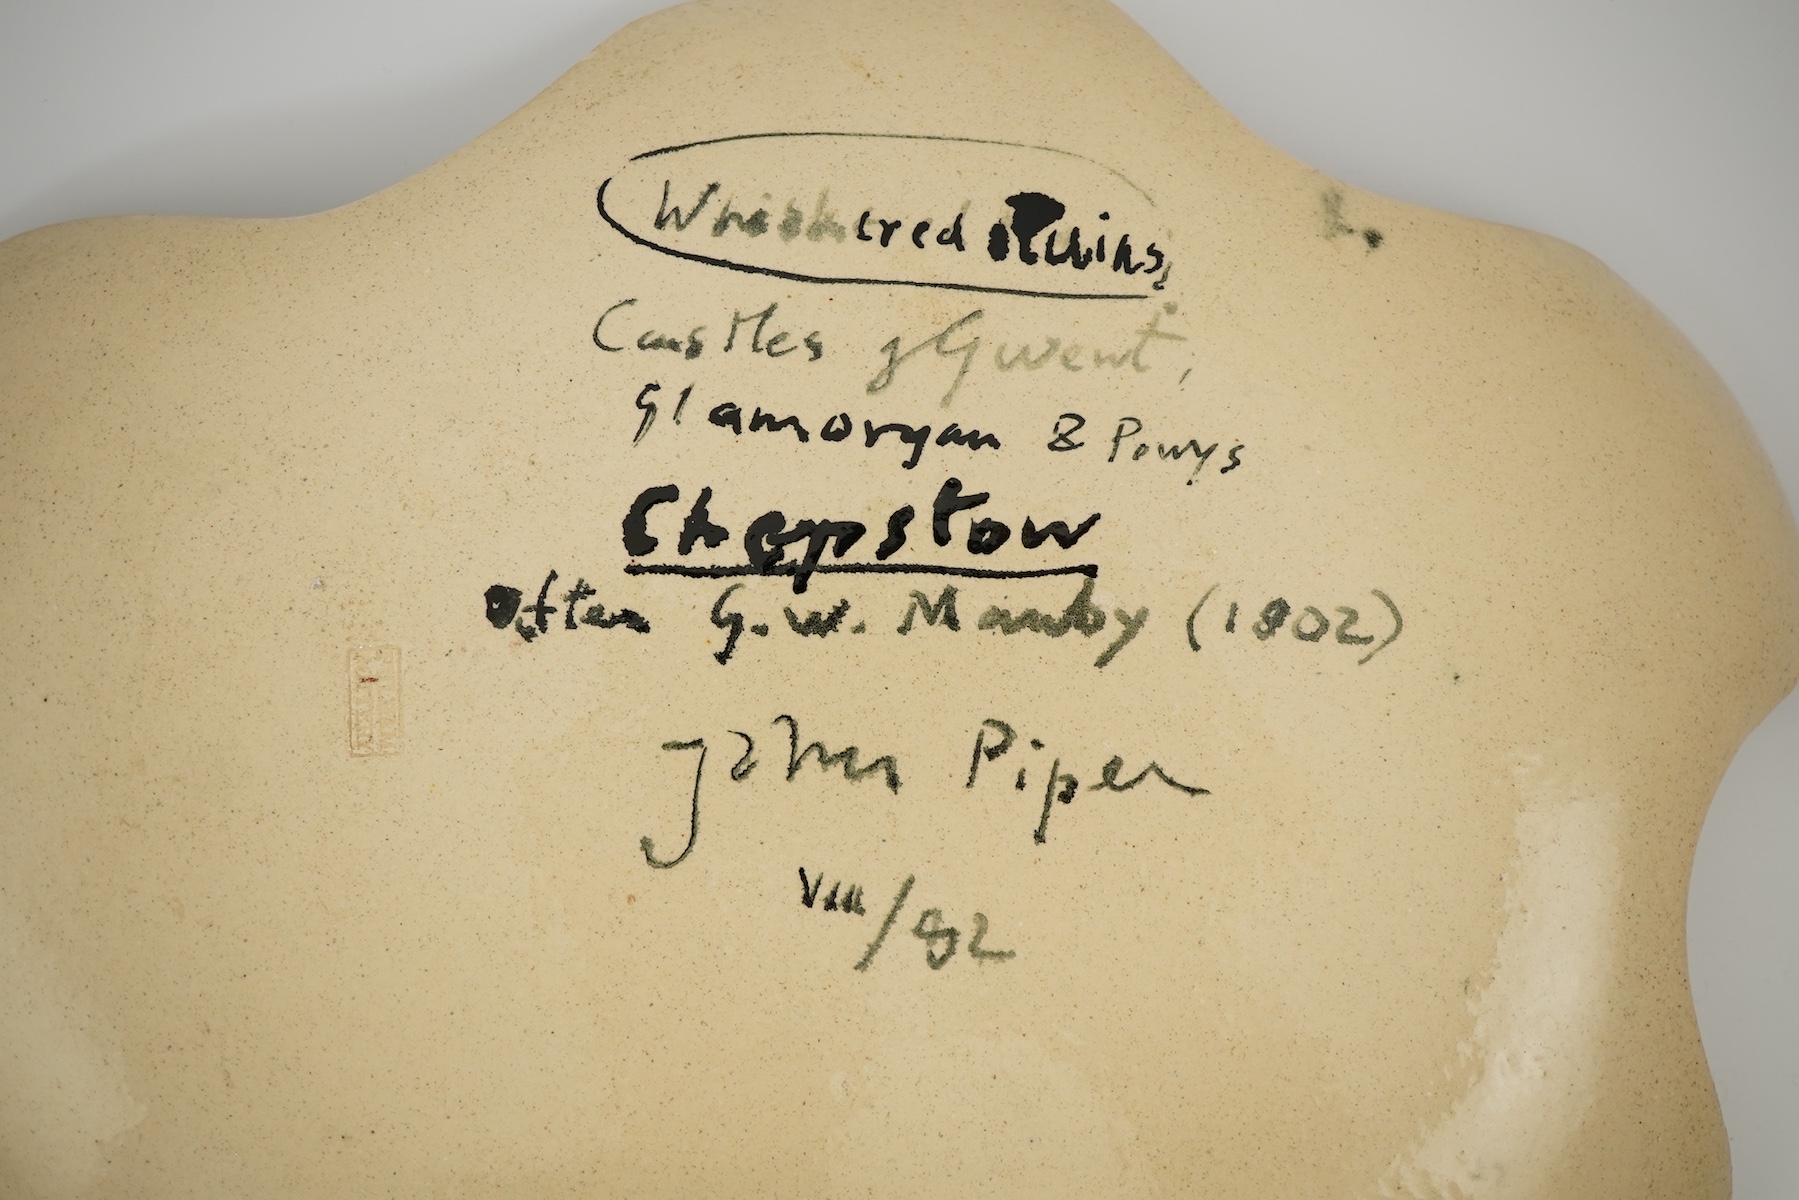 Whiskered Ruins,
Castles of Gwent,
Glamorgan & Powys
Chepstow
after G.W. Manby (1802)
John Piper
VIII/82